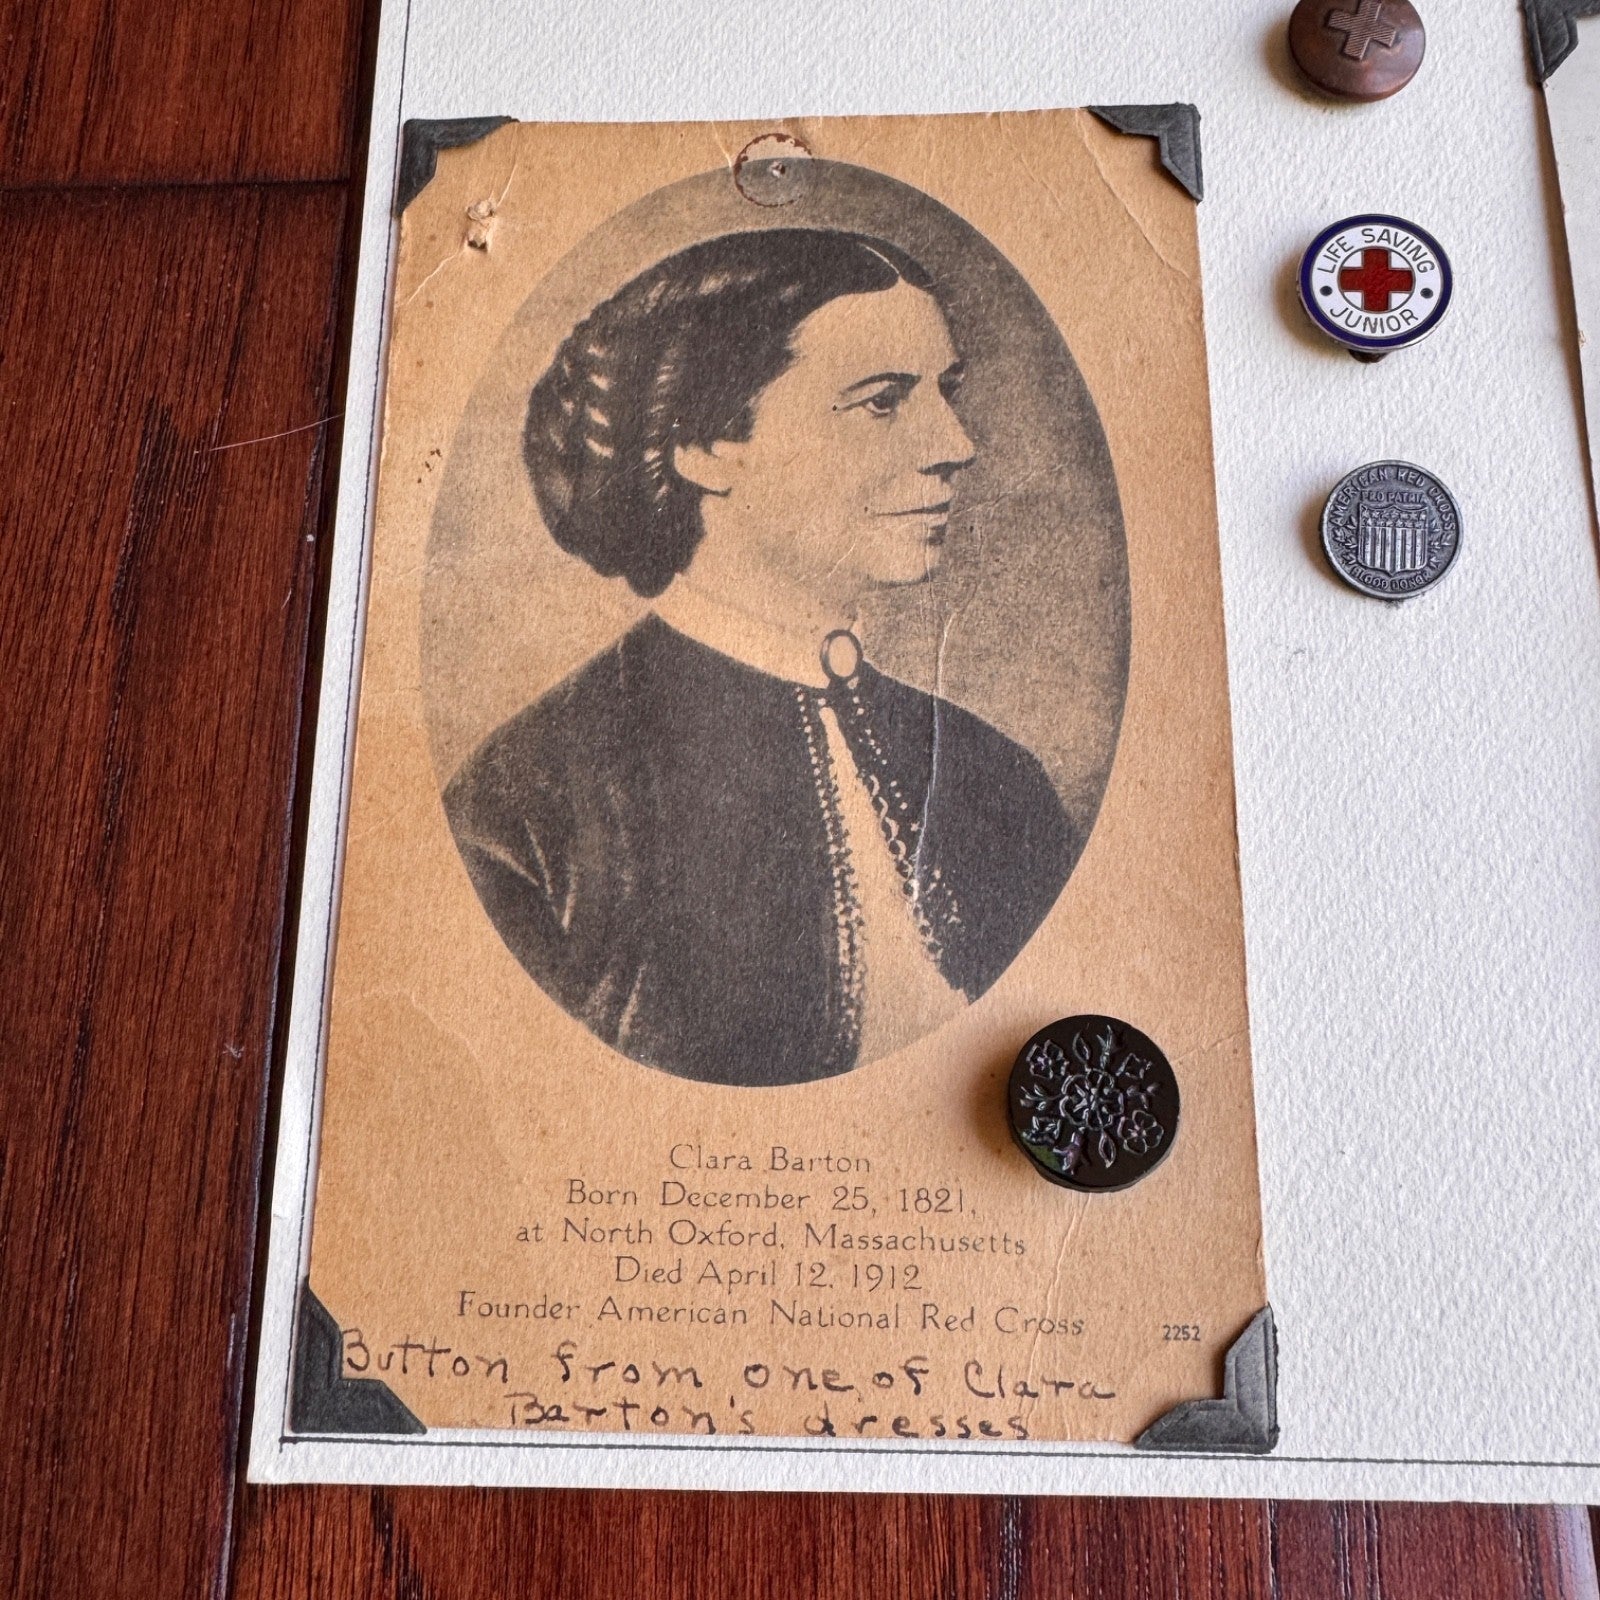 LIFE SAVING
JUNIOR
AMERICAN RED CROSS
PRO PATRIA
BLOOD DONOR
Clara Barton
Born December 25, 1821,
at North Oxford, Massachusetts
Died April 12, 1912
Founder American National Red Cross
2252
Button from one of Clara
Barton's dresses